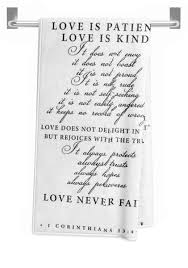 LOVE IS PATIEN
LOVE IS KIND
It does not envy
it does not boast
it is not proud
It is not rude
it is not self seeking
it is not easily angered
it keeps no record of wrong
LOVE DOES NOT DELIGHT IN
BUT REJOICES WITH THE TR
It always protects
always trusts
always hopes
always perseveres
LOVE NEVER FAI
1 CORINTHIANS 13:4